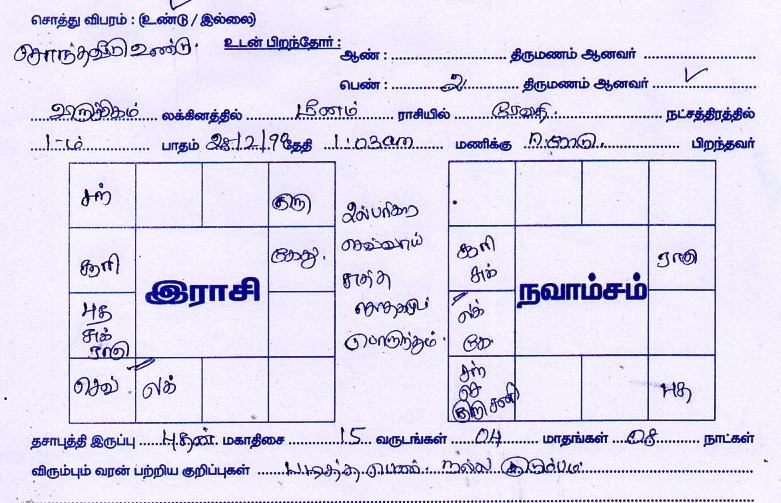 சொத்து விபரம் : (உண்டு / இல்லை)
சொந்தவீடு உண்டு. உடன் பிறந்தோர் : ஆண் : திருமணம் ஆனவர்
பெண் : 2 திருமணம் ஆனவர் ✓
விருச்சிகம் லக்கினத்தில் மீனம் ராசியில் ரேவதி நட்சத்திரத்தில்
1-ம் பாதம் 28/12/90 தேதி 1:03 மணிக்கு பிறந்தவர்
சந் குரு
சூரி கேது
இராசி
புத சுக் ராகு
செவ் லக்
செவ்வாய்
பொருந்தும்.
சூரி சுக் ராகு
நவாம்சம்
லக் கே
சந் செ குரு சனி புத
தசாபுத்தி இருப்பு புதன் மகாதிசை 15 வருடங்கள் 04 மாதங்கள் 08 நாட்கள்
விரும்பும் வரன் பற்றிய குறிப்புகள் படித்த பெண். நல்ல குடும்பம்